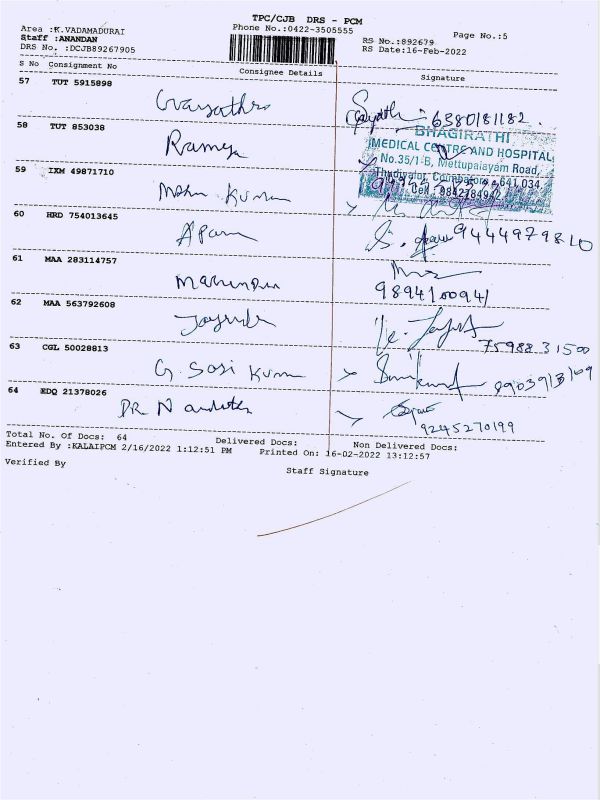 TPC/CJB DRS - PCM
Area :K.VADAMADURAI
Phone No.:0422-3505555
Page No.:5
Staff :ANANDAN
RS No.:892679
DRS No. :DCJB89267905
RS Date:16-Feb-2022
S No Consignment No Consignee Details Signature
57 TUT 5915898
Gayathri 6380181182.
58 TUT 853038
Ramya
BHAGIRATHI
MEDICAL CENTRE AND HOSPITAL
No.35/1-B, Mettupalayam Road,
Thudiyalor, Coimbatore - 641 034.
Cell : 9842784942
59 IXM 49871710
Mohan Kumar
60 HRD 754013645
9444979810
61 MAA 283114757
Mahendra
9894100941
62 MAA 563792608
75988 31500
63 CGL 50028813
G Sasi Kumar
64 EDQ 21378026
DR N
9245270199
Total No. Of Docs: 64 Delivered Docs: Non Delivered Docs:
Entered By :KALAIPCM 2/16/2022 1:12:51 PM Printed On: 16-02-2022 13:12:57
Verified By
Staff Signature